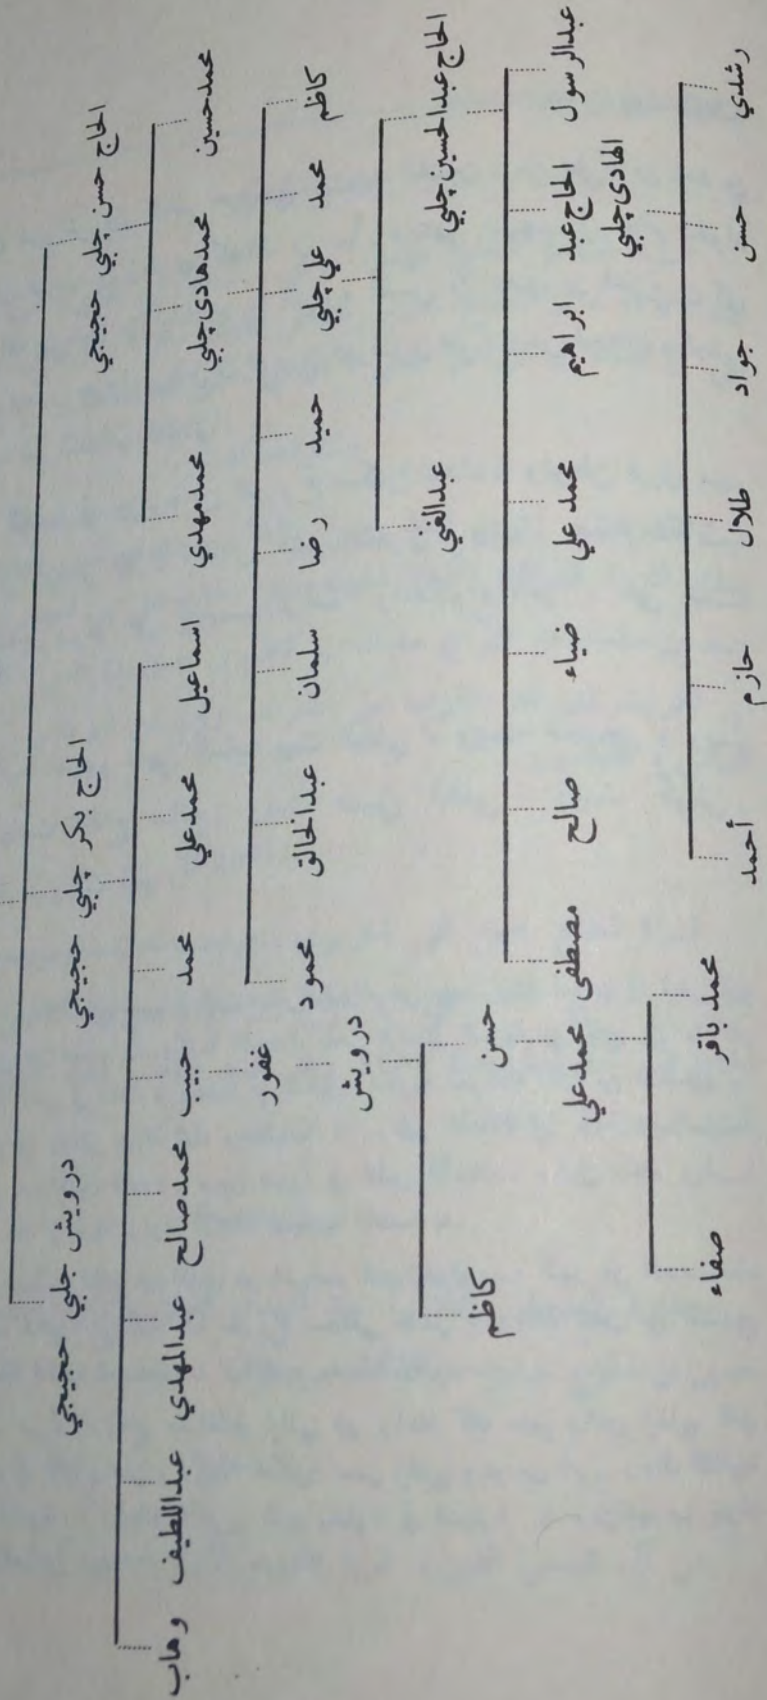 الحاج حسن چلبي حجيجي الحاج بكر چلبي حجيجي درويش جلبي حجيجي
محمدحسين محمدهادي چلبي محمدمهدي اسماعيل محمدعلي محمد حبيب محمدصالح عبدالمهدي عبداللطيف وهاب
كاظم محمد علي چلبي حميد رضا سلمان عبدالخالق محمود غفور
درويش
الحاج عبدالحسين چلبي عبدالغني حسن كاظم
عبدالرسول الحاج عبد ابراهيم محمد علي ضياء صالح مصطفى محمدعلي
الهادي چلبي
رشدي حسن جواد طلال حازم أحمد محمد باقر صفاء